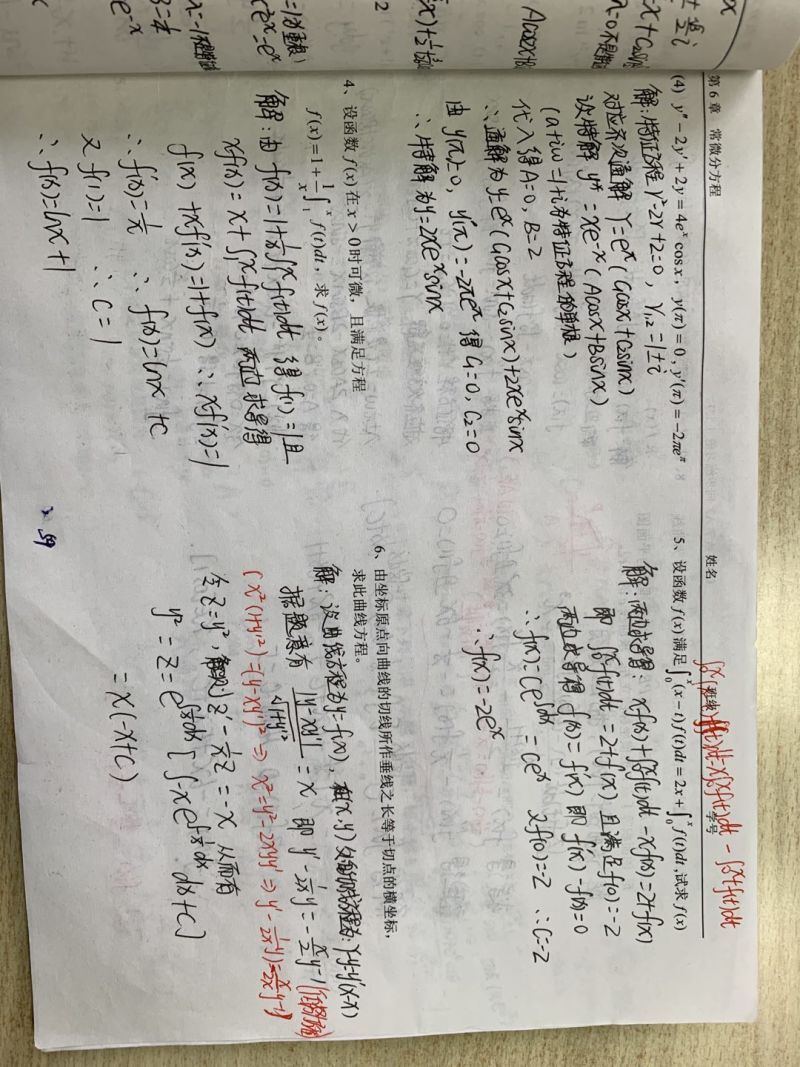 第6章 常微分方程
姓名
班级
学号
(4) y″－2y′＋2y＝4eˣcos x，y(π)＝0，y′(π)＝－2πe^π
解：特征方程 r²-2r+2=0，r₁,₂=1±i
对应齐次通解 Y=eˣ(C₁cosx+C₂sinx)
设特解 y*=xe⁻ˣ(Acosx+Bsinx)
(a+iω=1+i为特征方程的单根)
代入得A=0，B=2
∴通解为y=eˣ(C₁cosx+C₂sinx)+2xeˣsinx
由y(π)=0，y′(π)=-2πe^π 得C₁=0，C₂=0
∴特解为y=2xeˣsinx
4、设函数 f(x) 在 x＞0 时可微，且满足方程
f(x)＝1＋1/x ∫₁ˣ f(t)dt，求 f(x)。
解：由f(x)=1+1/x∫₁ˣf(t)dt 得f(1)=1且
xf(x)=x+∫₁ˣf(t)dt 两边求导得
f(x)+xf′(x)=1+f(x) ∴xf′(x)=1
∴f′(x)=1/x ∴f(x)=lnx+C
又f(1)=1 ∴C=1
∴f(x)=lnx+1
59
5、设函数 f(x) 满足 ∫₀ˣ(x－t)f(t)dt＝2x＋∫₀ˣf(t)dt,试求 f(x)
解：两边求导得：xf(x)+∫₀ˣf(t)dt-xf(x)=2+f(x)
即 ∫₀ˣf(t)dt=2+f(x) 且满足f(0)=-2
两边求导得 f(x)=f′(x) 即f′(x)-f(x)=0
∴f(x)=Ce^∫dx=Ceˣ 又f(0)=-2 ∴C=-2
∴f(x)=-2eˣ
6、由坐标原点向曲线的切线所作垂线之长等于切点的横坐标，
求此曲线方程。
解：设曲线方程为y=f(x)，在(x,y)处的切线方程为：Y-y=y′(X-x)
据题意有 |y-xy′|/√(1+y′²)=x 即 y′-1/(2x)y=-x/2 y⁻¹
(x²(1+y′²)=(y-xy′)² ⇒ x²=y²-2xyy′ ⇒ y′-1/(2x)y=-x/2 y⁻¹)
令z=y²，则 z′-1/x z=-x 从而有
y²=z=e^∫1/x dx[∫-xe^-∫1/x dx dx+C]
=x(-x+C)